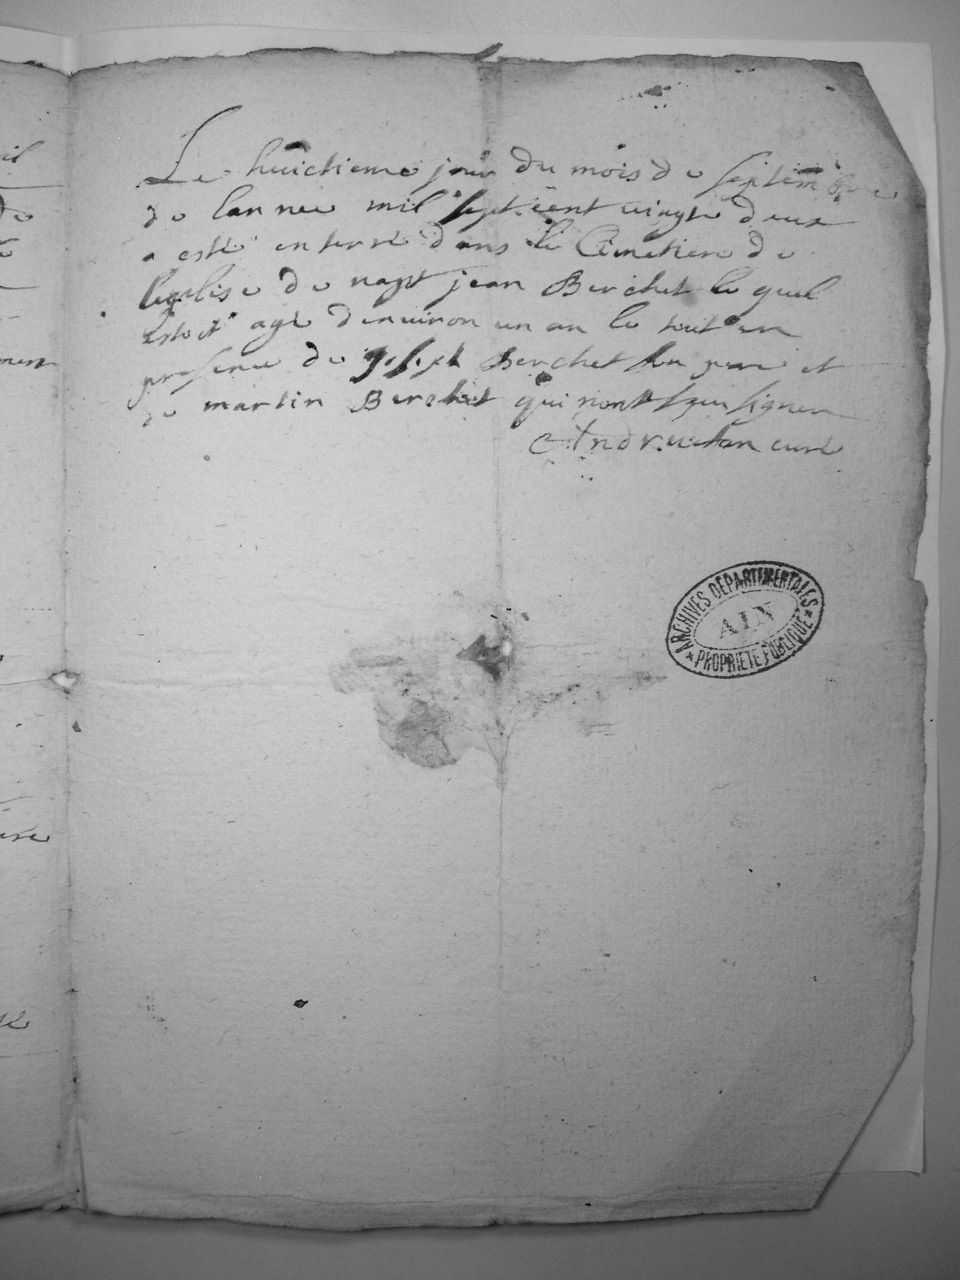 Le huictieme jour du mois de septembre
de lannee mil sept cent vingte deux
a esté enterré dans le Cimetiere de
leglise de napt jean Berchet le quel
estoit agé denuiron un an le tout en
presence de Joseph Berchet son pere et
de martin Berchet qui nont sceu signer
curé
ARCHIVES DEPARTEMENTALES
AIN
PROPRIETE PUBLIQUE